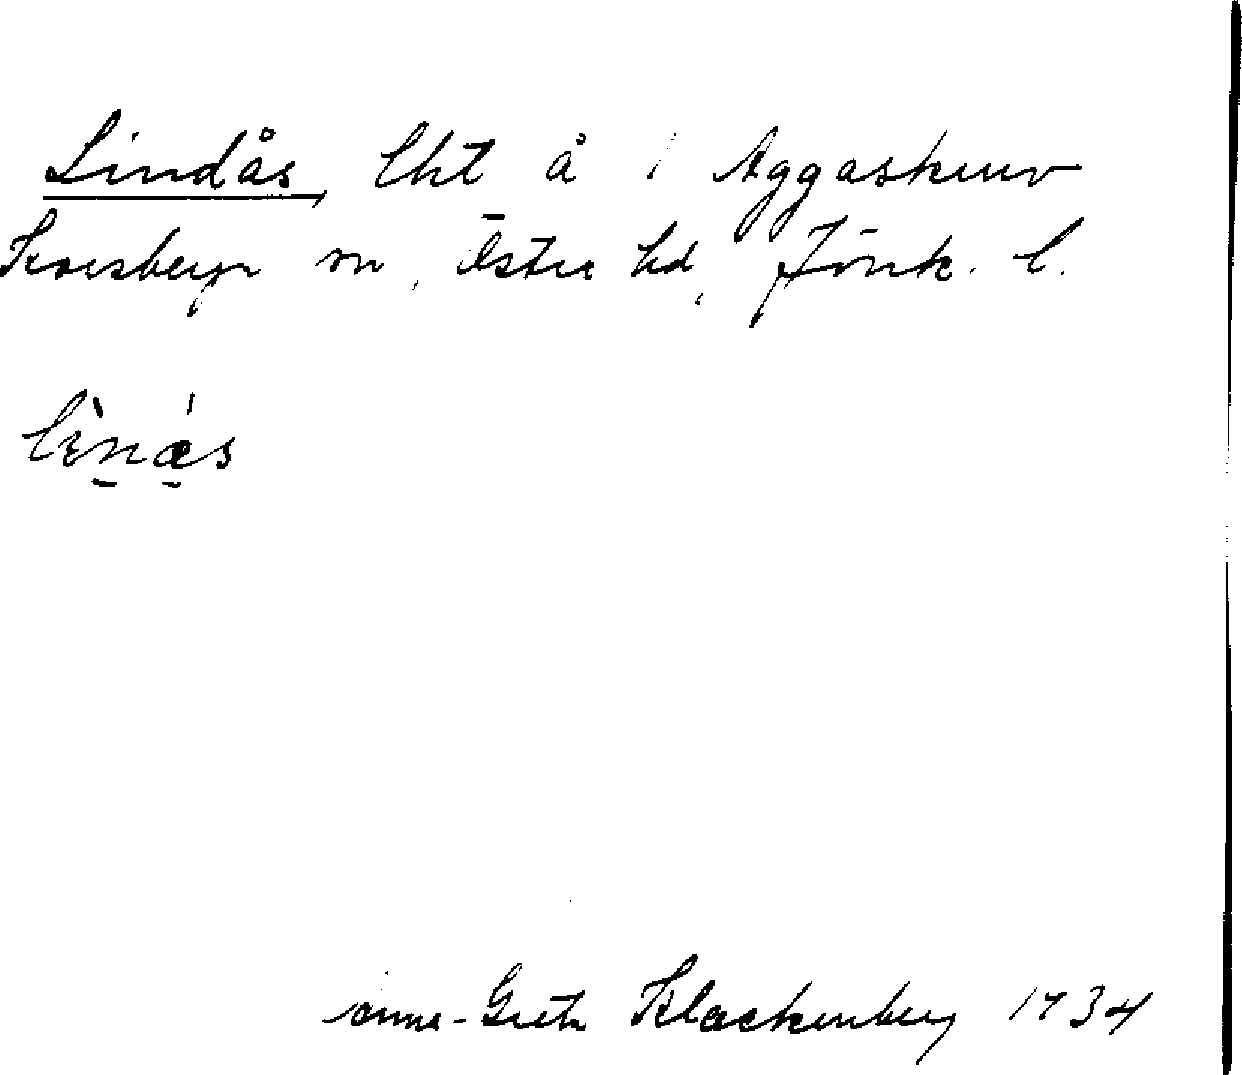 Lindås, lht å 1 Aggaskurv
Korsberga sn, Östra hd, Jönk. l.
linås
Anna-Greta Klackenberg 1934